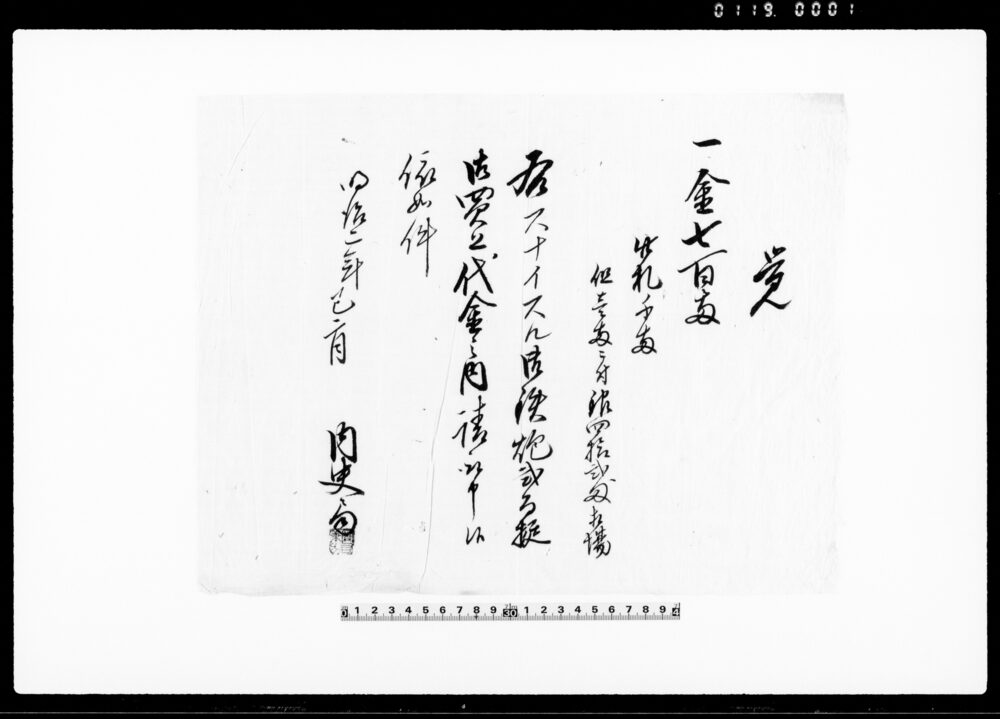 0119 0001
覚
一金七百両
此札千両
但壱両ニ付銀四拾弐匁相場
右スナイスル御鉄炮弐百挺
御買上代金之内請取申候
依如件
明治二年巳二月
内史局
0 1 2 3 4 5 6 7 8 9 30 1 2 3 4 5 6 7 8 9 4